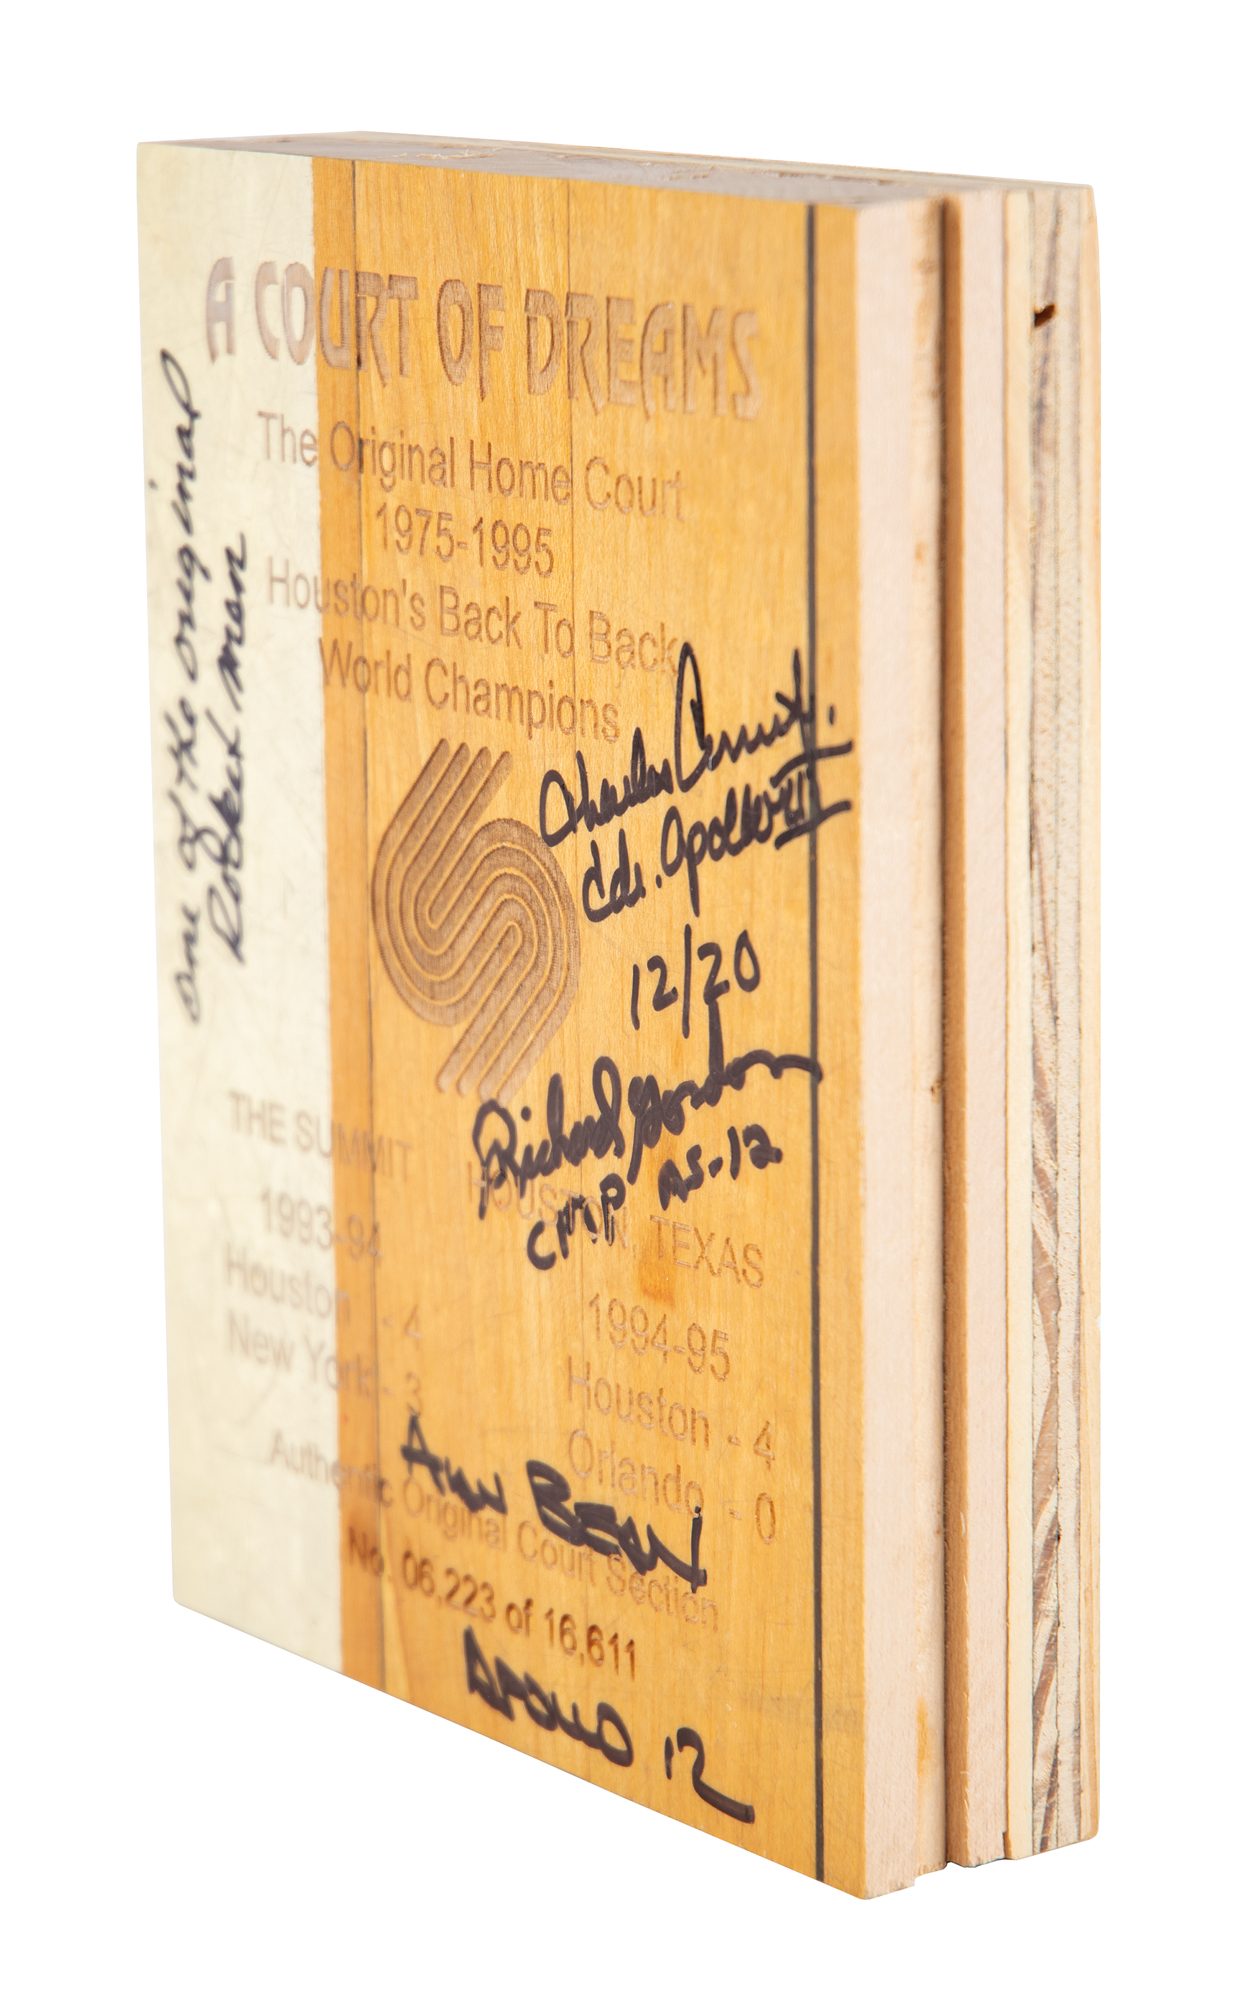 A COURT OF DREAMS
The Original Home Court
1975-1995
Houston's Back To Back
World Champions
one of the original
Rocket men
Charles Conrad Jr.
Cdr. Apollo XII
12/20
Richard Gordon
CMP AS-12
THE SUMMIT HOUSTON, TEXAS
1993-94
Houston - 4
New York - 3
1994-95
Houston - 4
Orlando - 0
Alan BEAN
Authentic Original Court Section
No. 06,223 of 16,611
APOLLO 12